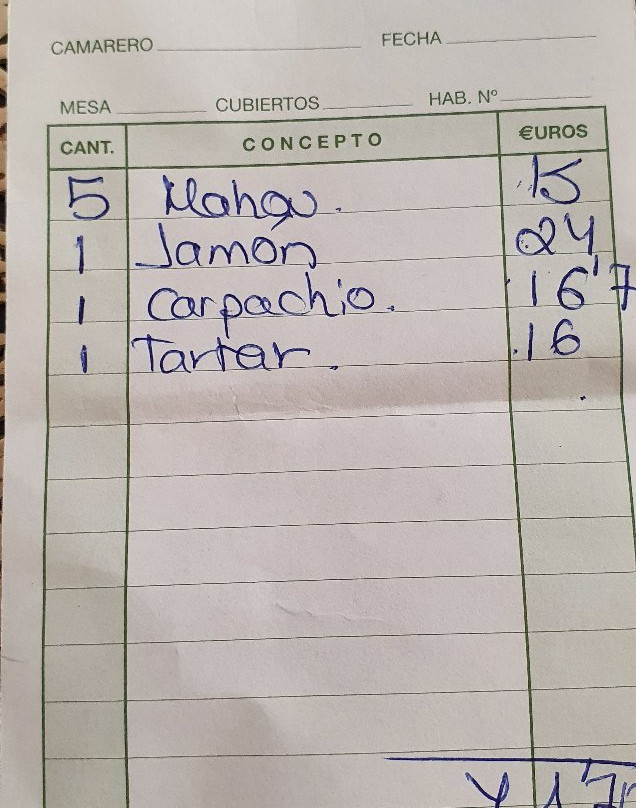 CAMARERO
FECHA
MESA CUBIERTOS HAB. Nº
CANT. CONCEPTO €UROS
5 Mahou. 15
1 Jamón 24
1 Carpachio. 16'7
1 Tartar. 16